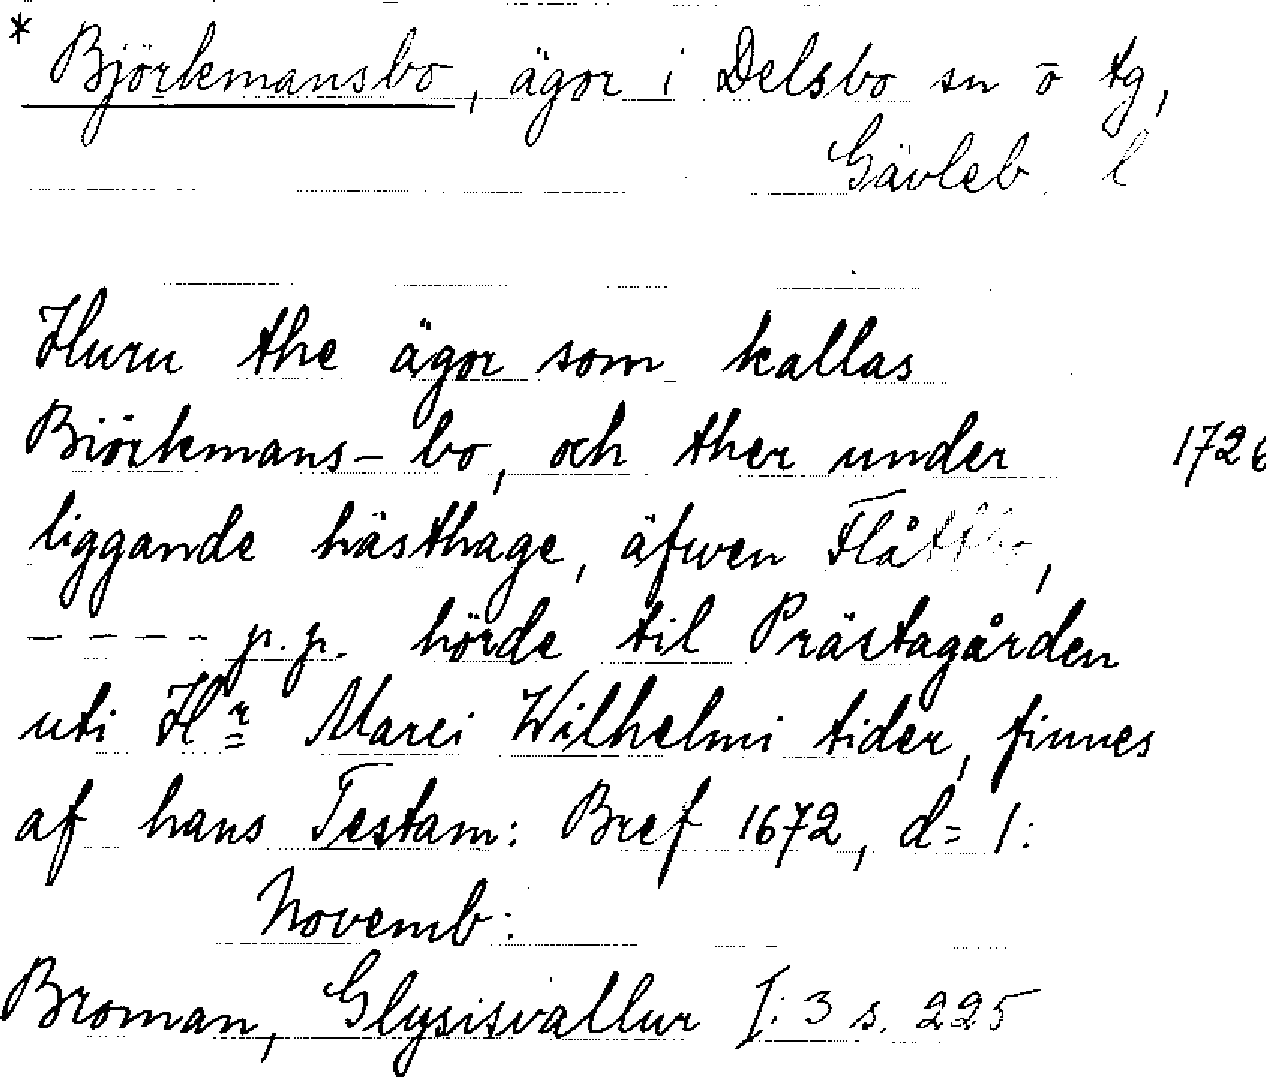 * Björkmansbo, ägor i Delsbo sn ō tg,
Gävleb. l
Huru the ägor som kallas
Biörkmans- bo, och ther under 1726
liggande hästhage, äfwen Flåttbo,
- - - - p.p. hörde til Prästagården
uti Hr Marci Wilhelmi tider, finnes
af hans Testam: Bref 1672, d= 1:
Novemb:
Broman, Glysisvallur I: 3 s. 225